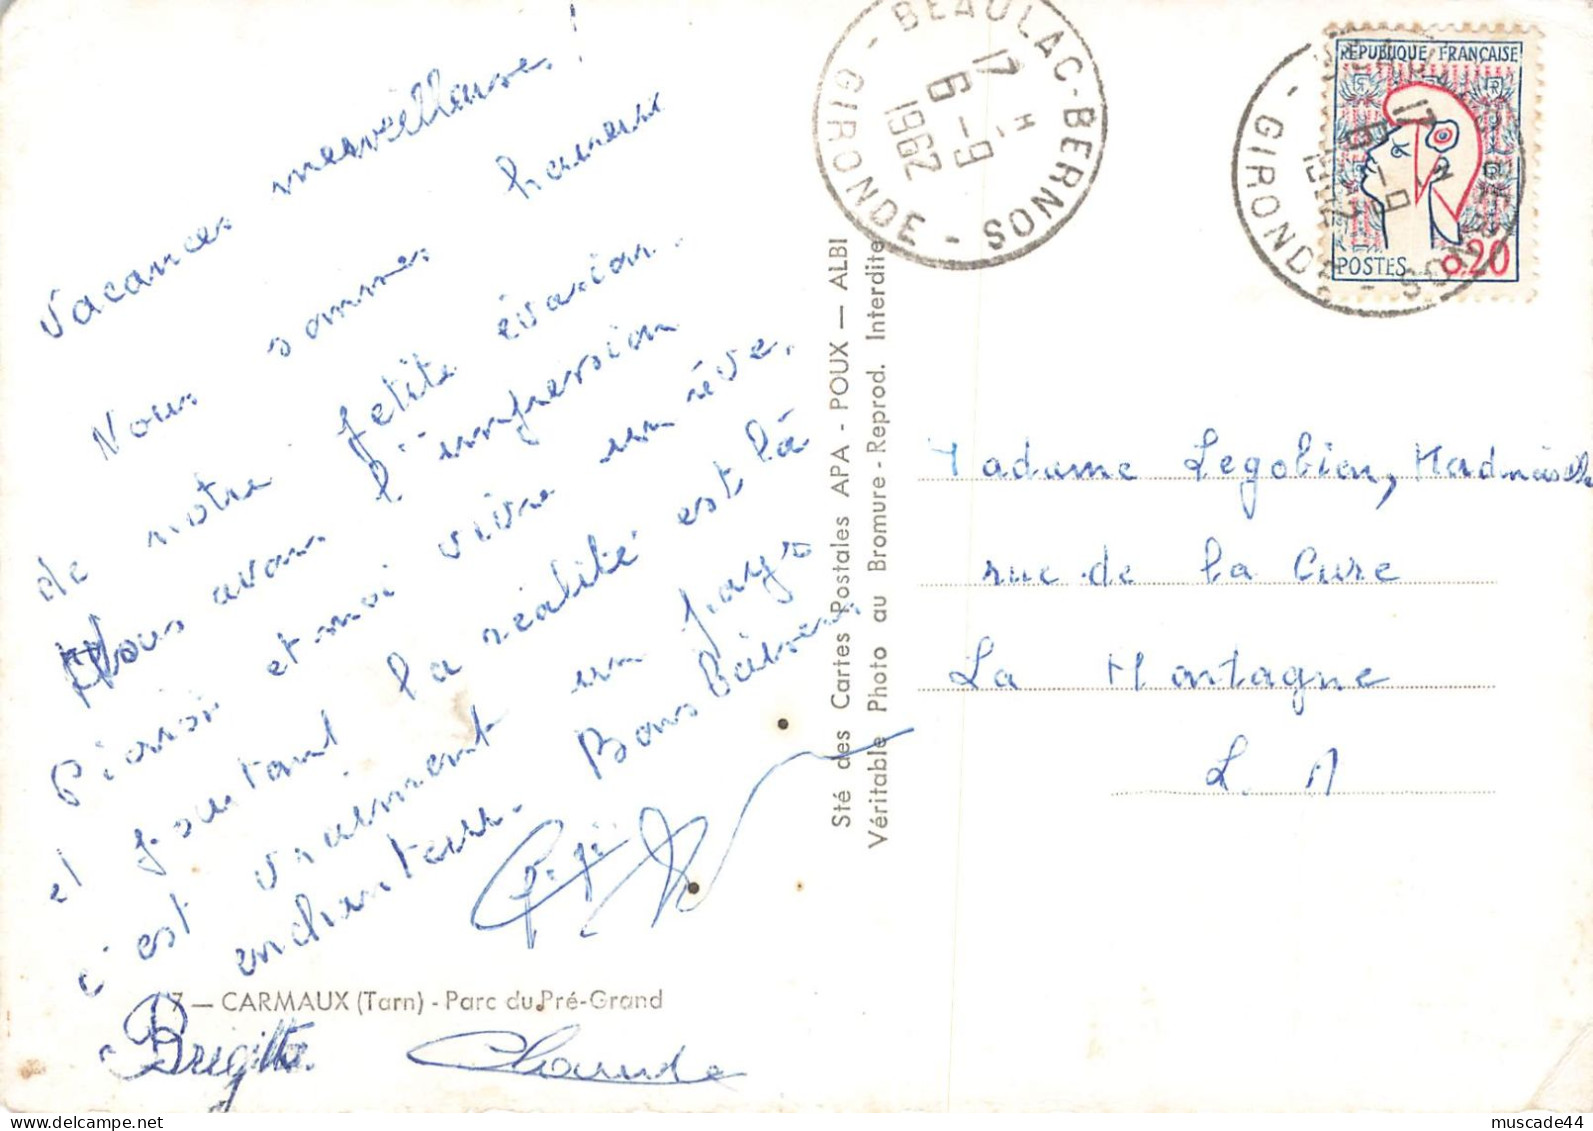 Vacances merveilleuses !
Nous sommes heureux
de notre petite évasion.
Nous avons l'impression
Pierrot et moi vivre un rêve,
et pourtant la réalité est là
c'est vraiment un pays
enchanteur. Bons Baisers.
Gigi
Brigitte
Claude
17 — CARMAUX (Tarn) - Parc du Pré-Grand
Sté des Cartes Postales APA - POUX — ALBI
Véritable Photo au Bromure - Reprod. Interdite
BEAULAC-BERNOS - GIRONDE -
17 H
6-9
1962
RÉPUBLIQUE FRANÇAISE
POSTES 0,20
- GIRONDE -
17 H
6-9
Madame Legobien, Madmoiselle
rue de la Cure
La Montagne
L. A
muscade44